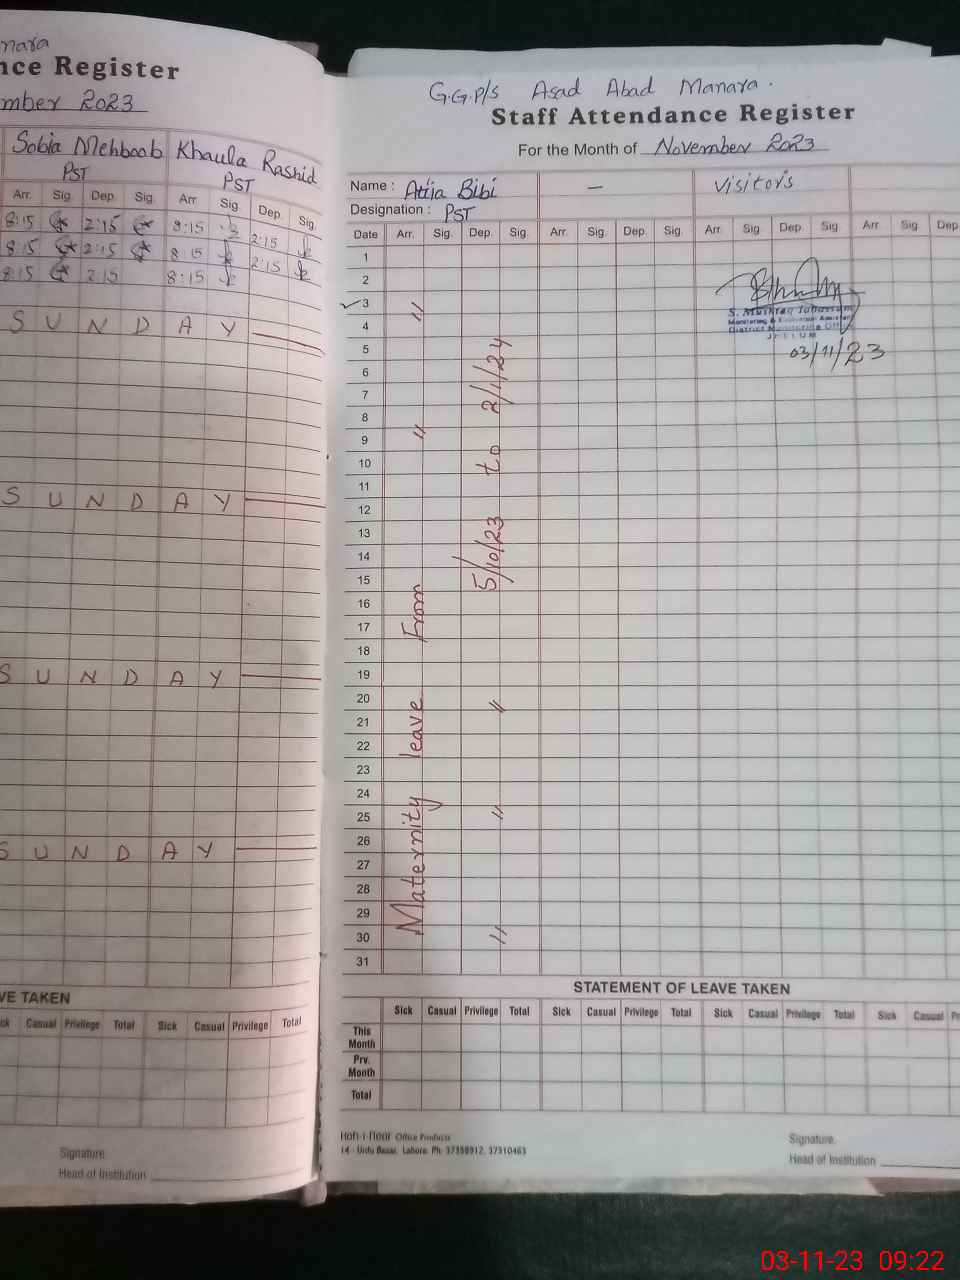 nara
nce Register
mber 2023
Sobia Mehboob Khaula Rashid
PST PST
Arr. Sig. Dep. Sig. Arr. Sig. Dep. Sig.
8:15 2:15 8:15 2:15
8:15 2:15 8:15 2:15
8:15 2:15 8:15
S U N D A Y
S U N D A Y
S U N D A Y
S U N D A Y
VE TAKEN
ck Casual Privilege Total Sick Casual Privilege Total
Signature
Head of Institution
G.G.P/S Asad Abad Manara.
Staff Attendance Register
For the Month of November 2023
Name : Attia Bibi — Visitors
Designation : PST
Date Arr. Sig. Dep. Sig. Arr. Sig. Dep. Sig. Arr. Sig. Dep. Sig. Arr. Sig. Dep
1
2
3
4
5
6
7
8
9
10
11
12
13
14
15
16
17
18
19
20
21
22
23
24
25
26
27
28
29
30
31
Maternity leave From " "
" " " 5/10/23 to 2/1/24
S. Mushtaq Tabassum
Monitoring & Evaluation Assistant
District Monitoring Off
JHELUM
03/11/23
STATEMENT OF LEAVE TAKEN
Sick Casual Privilege Total Sick Casual Privilege Total Sick Casual Privilege Total Sick Casual Pr
This Month
Prv. Month
Total
Koh-i-Noor Office Products
14 - Urdu Bazar, Lahore. Ph: 37358912, 37310463
Signature
Head of Institution
03-11-23 09:22